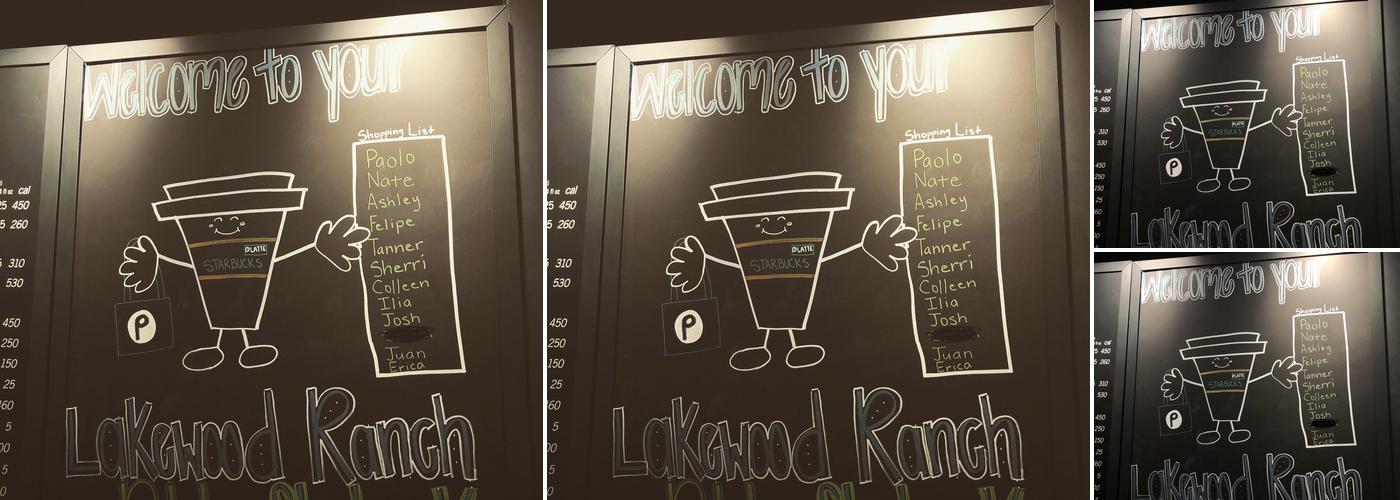 Welcome to your
Shopping List
Paolo
Nate
Ashley
Felipe
Tanner
Sherri
Colleen
Ilia
Josh
Juan
Erica
LATTE
STARBUCKS
P
Lakewood Ranch
cal
25 450
5 260
5 310
530
450
250
150
25
460
5
5
Welcome to your
Shopping List
Paolo
Nate
Ashley
Felipe
Tanner
Sherri
Colleen
Ilia
Josh
Juan
Erica
LATTE
STARBUCKS
P
Lakewood Ranch
cal
25 450
5 260
5 310
530
450
250
150
25
460
5
5
Welcome to your
Shopping List
Paolo
Nate
Ashley
Felipe
Tanner
Sherri
Colleen
Ilia
Josh
Juan
Erica
LATTE
STARBUCKS
P
Lakewood Ranch
Welcome to your
Shopping List
Paolo
Nate
Ashley
Felipe
Tanner
Sherri
Colleen
Ilia
Josh
Juan
Erica
LATTE
STARBUCKS
P
Lakewood Ranch